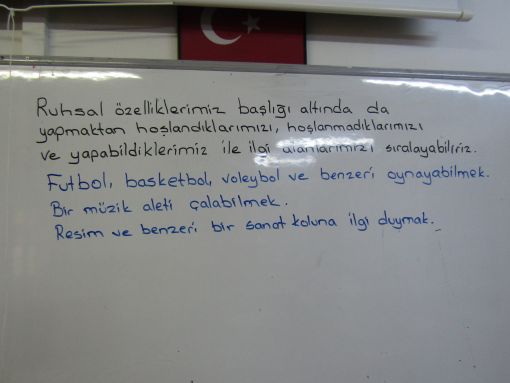 Ruhsal özelliklerimiz başlığı altında da
yapmaktan hoşlandıklarımızı, hoşlanmadıklarımızı
ve yapabildiklerimiz ile ilgi alanlarımızı sıralayabiliriz.
Futbol, basketbol, voleybol ve benzeri oynayabilmek.
Bir müzik aleti çalabilmek.
Resim ve benzeri bir sanat koluna ilgi duymak.